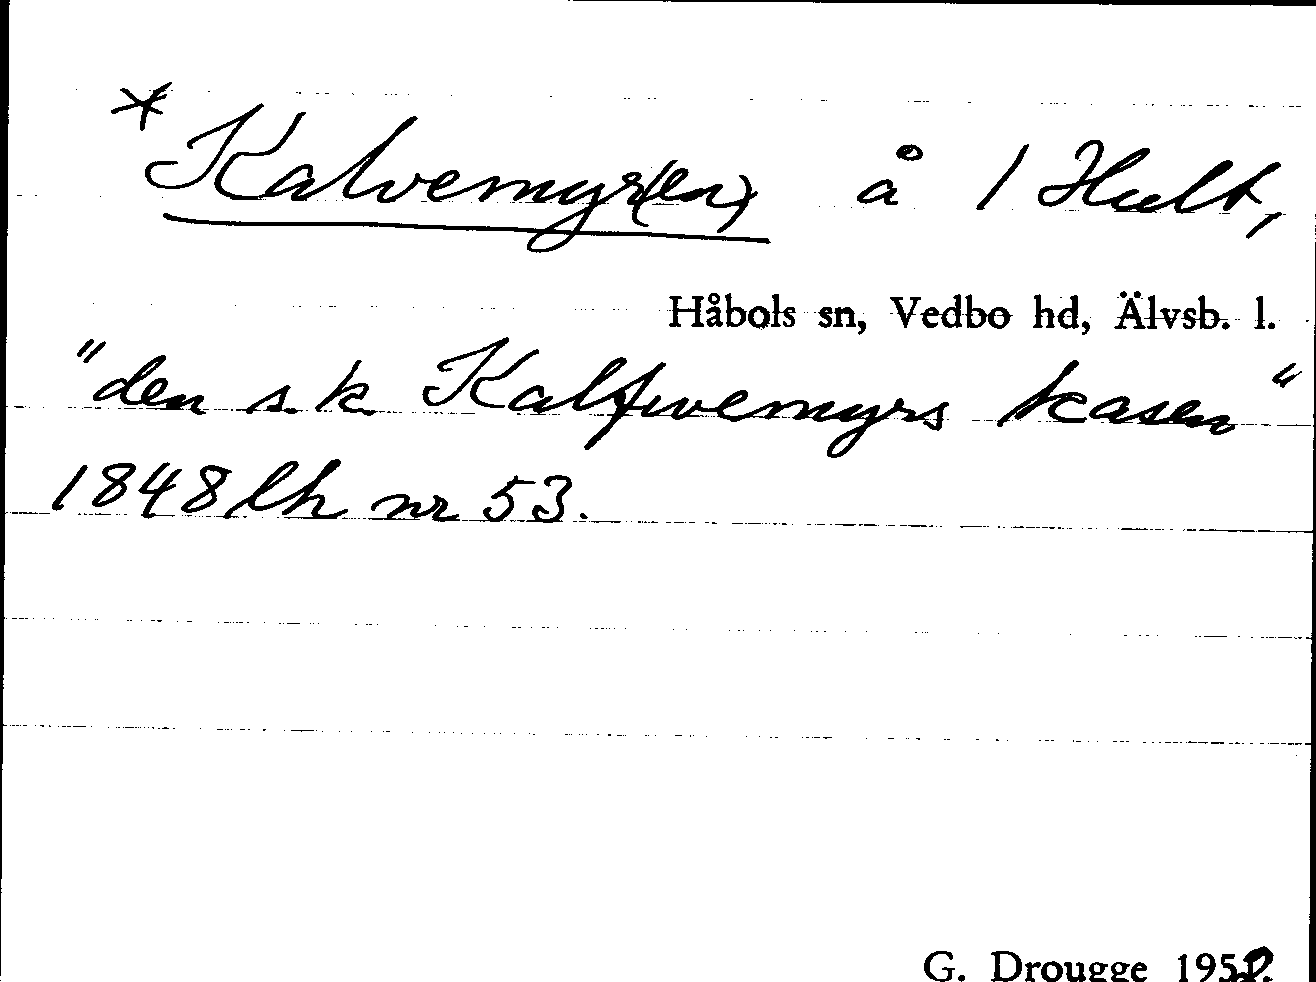 *Kalvemyr(en) å 1 Hult,
Håbols sn, Vedbo hd, Älvsb. l.
"den s.k. Kalfwemyrs kasen"
1848 lh nr 53.
G. Drougge